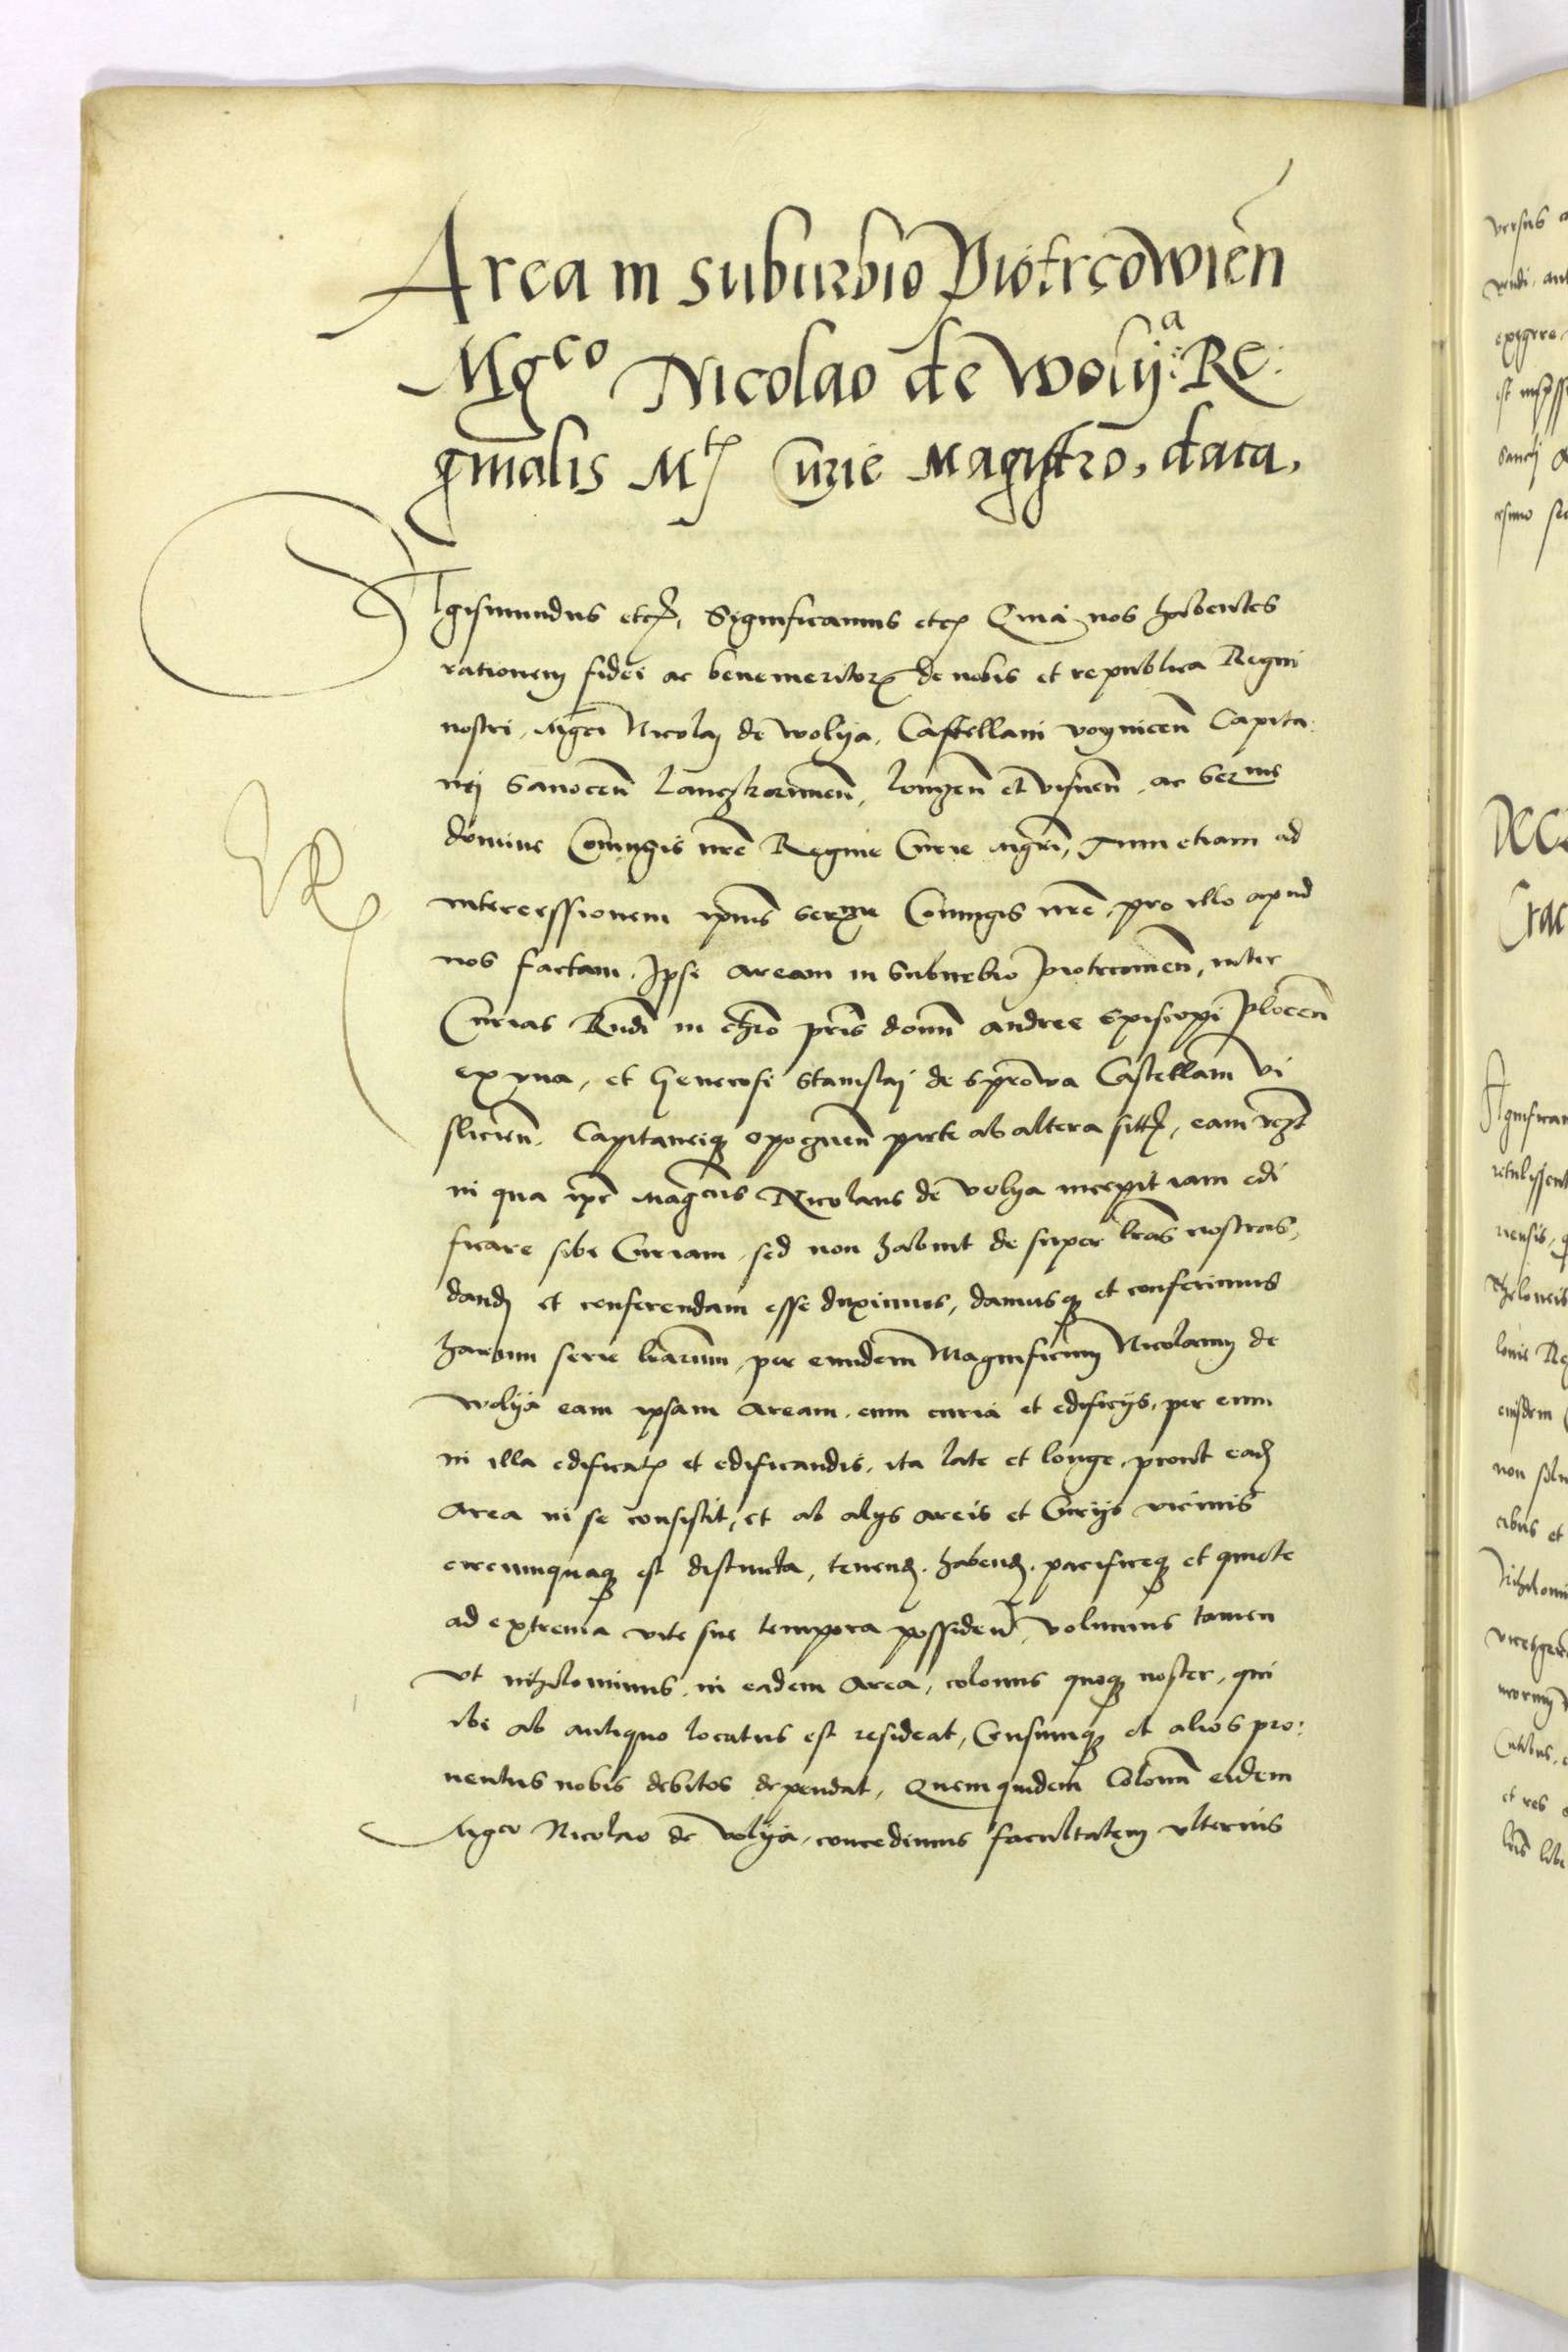 Area in suburbio Piotrcowien
Mgco Nicolao de Wolya: Re:
ginalis Mtis Curie Magistro, data,
Sigismundus etc, Significamus etc Quia nos habentes
rationem fidei ac benemeritorum de nobis et republica Regni
nostri, Mgci Nicolaj de wolya, Castellani voynicen Capita:
nej Sanocen Lanczkorunen, Lomzen et visnen, ac Serme
domine Coniugis nre Regine Curie mgri, Tum etiam ad
intercerssionem ipius Serme Coniugis nre, pro illo apud
nos factam, Ipse aream in Suburbio piotrcouien, inter
Curias Rndi in chro pris domini andree Episcopi plocen
ex vna, et Generosi Stanislaj de Sprowa Castellani vi
slicien, Capitaneique opocznen parte ab altera sitt, eam
in qua ipe Magcus Nicolaus de volya incepit iam edi
ficare sibi Curiam, sed non habuit de super lras nostras,
dand et conferendam esse duximus, damusque et conferimus
harum serie lrarum, per eundem Magnificum Nicolaum de
wolya eam ipsam aream, cum curia et edificijs, per eum
in illa edificatis et edificandis, ita late et longe, prout ead
area in se consistit, et ab alijs areis et Curijs vicinis
circumquaque est distincta, tenend, habend, pacificeque et quiete
ad extrema vite sue tempora possidend, volumus tamen
vt nihilominus, in eadem area, colonus quoque noster, qui
ibi ab antiquo locatus est resideat, Censumque et alios pro:
uentus nobis debitos dependat, Quem quidem Colonum eidem
Mgco Nicolao de volya, concedimus facultatem vlterius